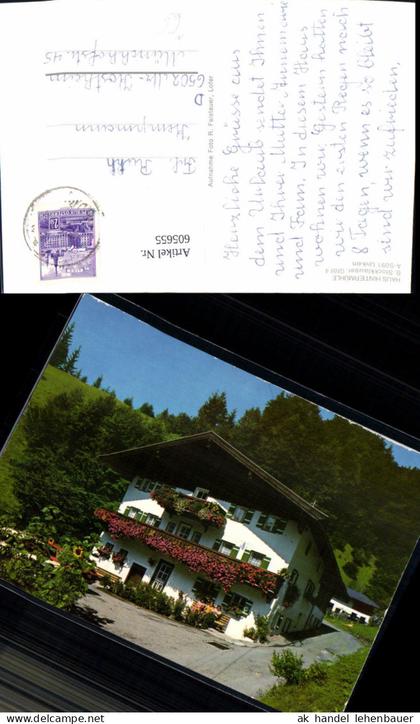 Herzliche Grüsse aus
dem Urlaub sendet Ihnen
und Ihrer Mutter Annemarie
und Fam. In diesem Haus
wohnen wir, Gestern hatten
wir den ersten Regen nach
8 Tagen, wenn es so bleibt
sind wir zufrieden,
HAUS HINTERMÜHLE
G. Stockklauser, Gföll 4
A-5091 Unken
Aufnahme Foto R. Faistauer, Lofer
Frl. Ruth
Hempmann
D
6502 Mz-Kostheim
Münchhofstr. 45
Artikel Nr.
605655
ak | handel lehenbauer